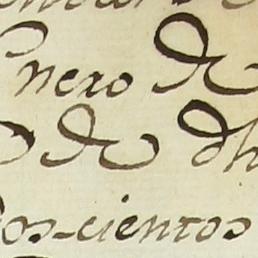 Enero de
de dh
dos-cientos